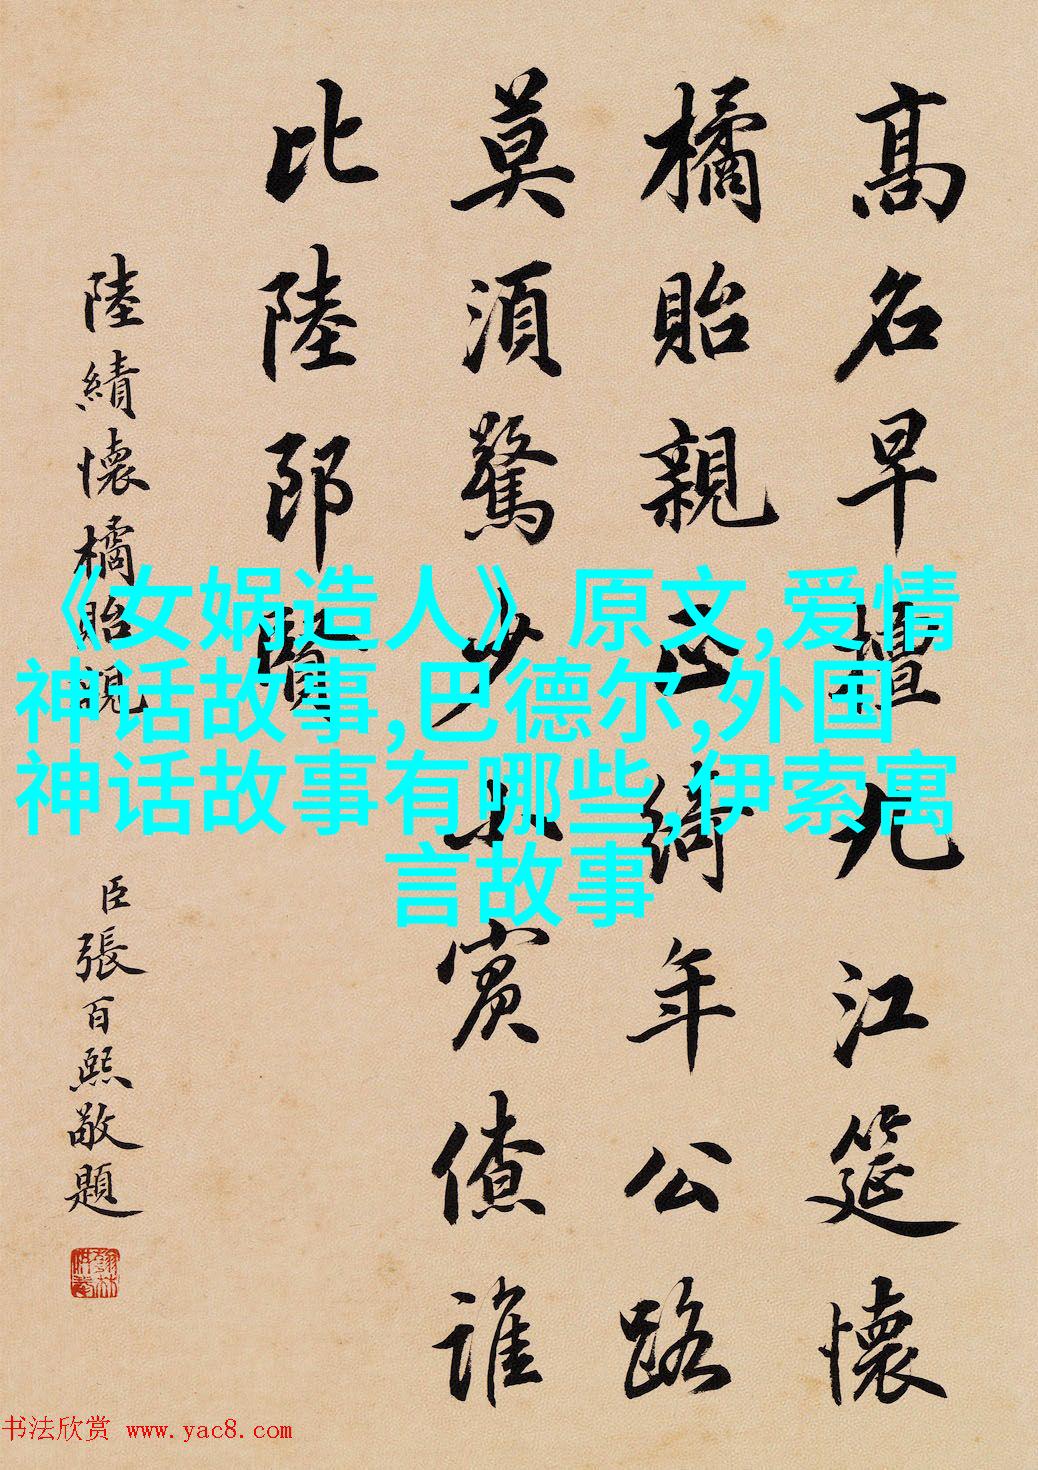 高名早擅九江筵懷
橘貽親正綺年公路
莫須驚少賓僚誰
比陸郎賢
陸績懷橘貽親
臣張百熙敬題
《女娲造人》原文,爱情
神话故事,巴德尔,外国
神话故事有哪些,伊索寓
言故事
书法欣赏 www.yac8.com